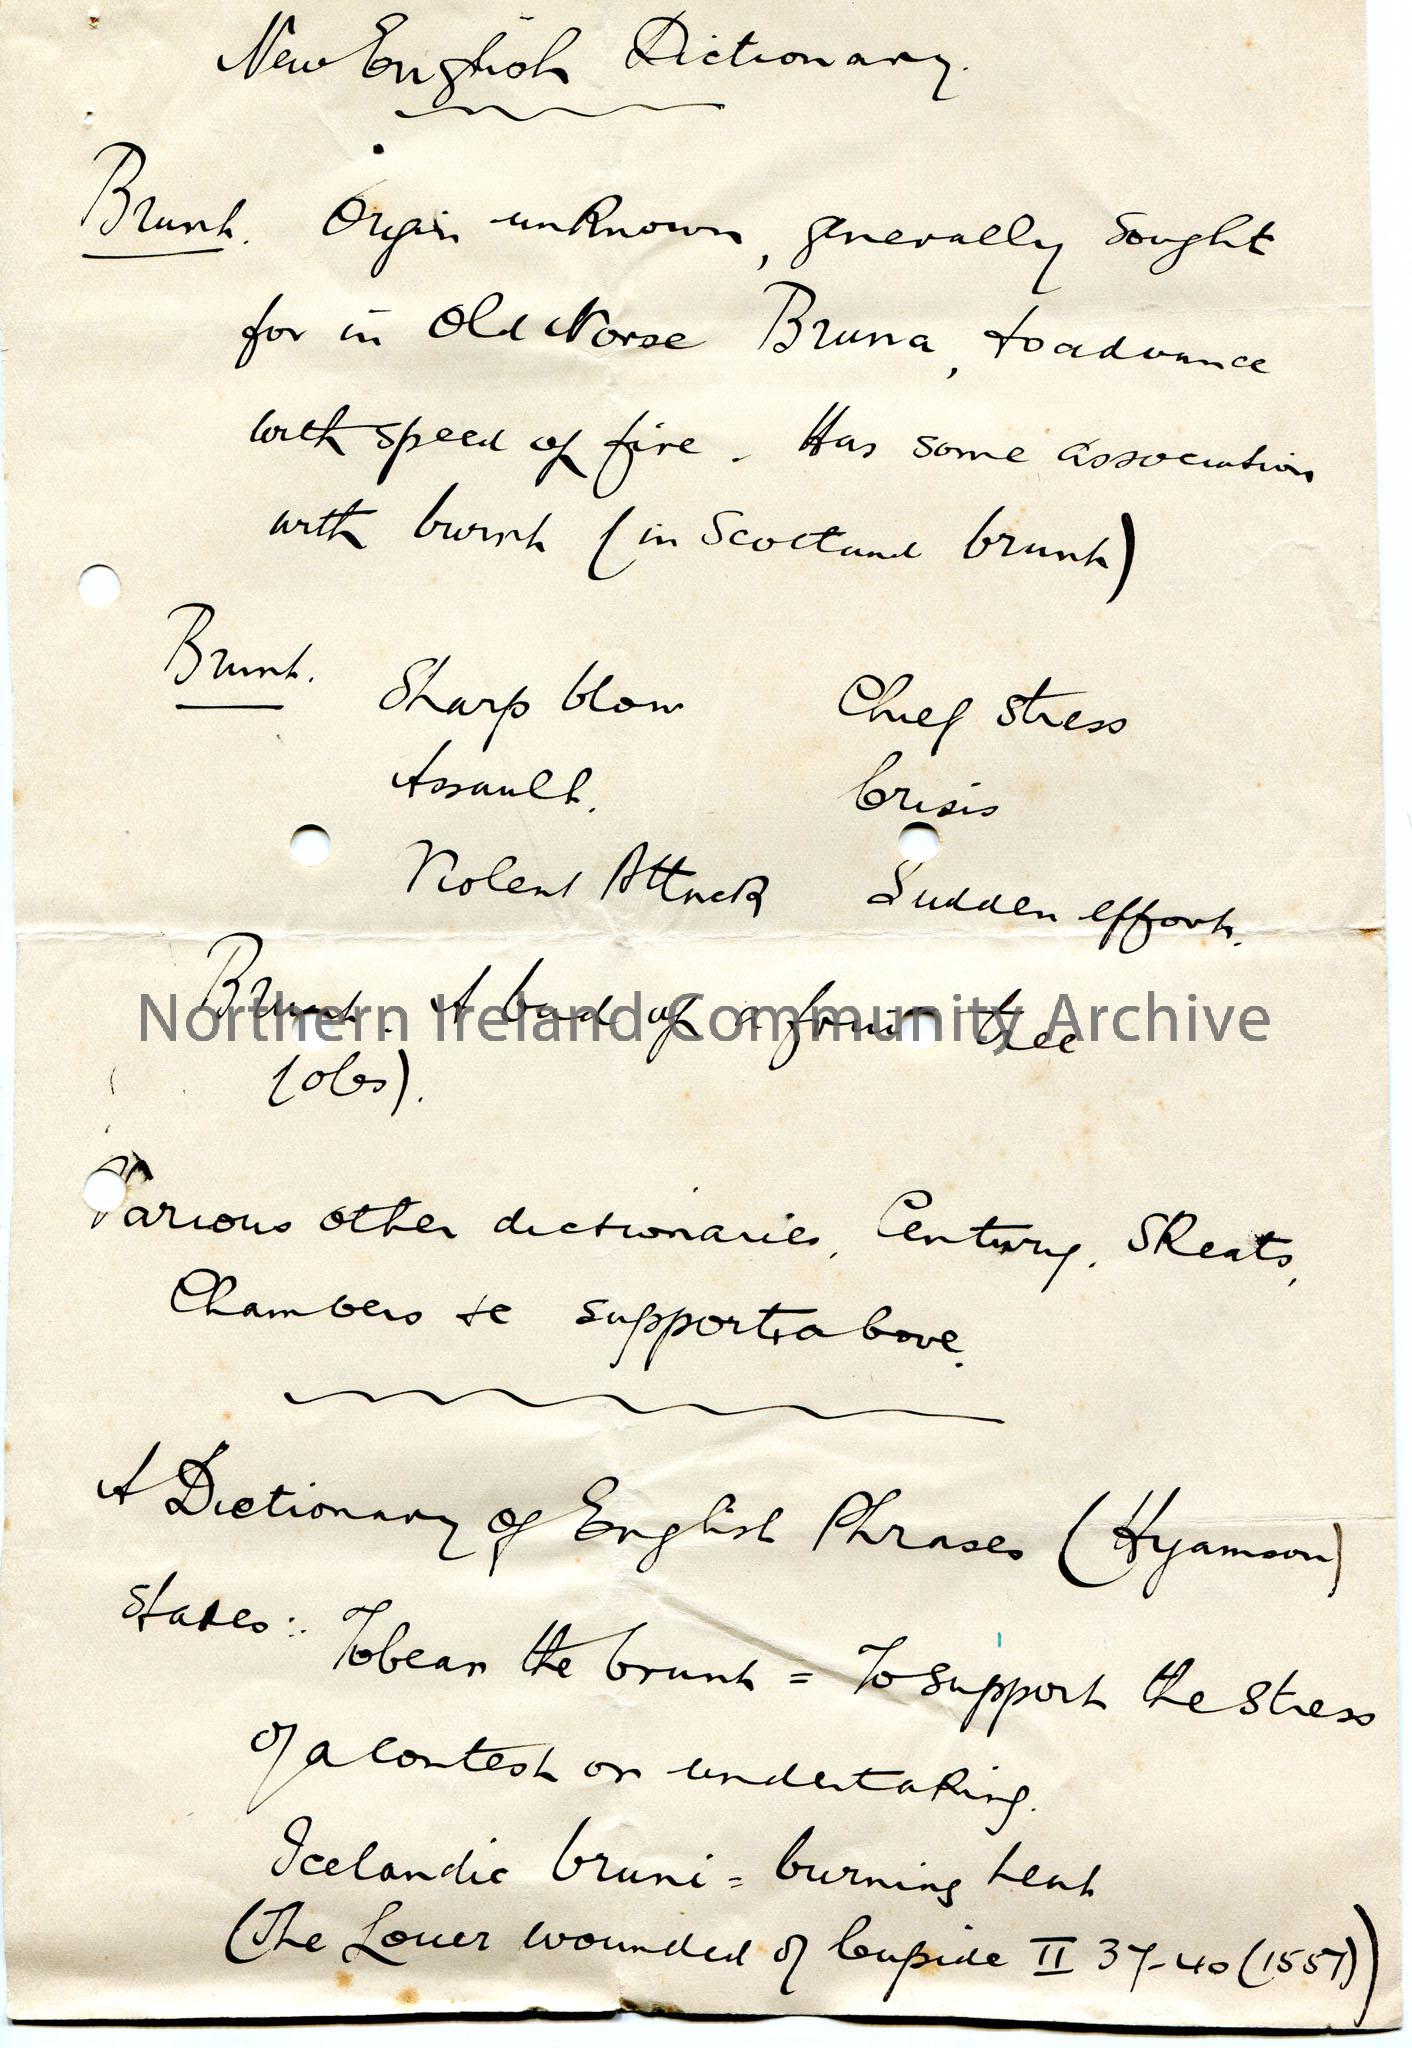 New English Dictionary.
Brunt. Orgin unknown, generally sought
for in Old Norse Bruna, to advance
with speed of fire. Has some association
with burnt (in Scotland brunt)
Brunt. Sharp blow Chief stress
Assault. Crisis
Violent Attack Sudden effort.
Brunt. A bud of a fruit tree
(obs).
Northern Ireland Community Archive
Various other dictionaries, Century, Skeats,
Chambers &c supports above.
A Dictionary of English Phrases (Hyamson)
States:. To bear the brunt = To support the stress
of a contest or undertaking.
Icelandic bruni = burning heat
(The Lover wounded of Cupide II 37-40 (1557))